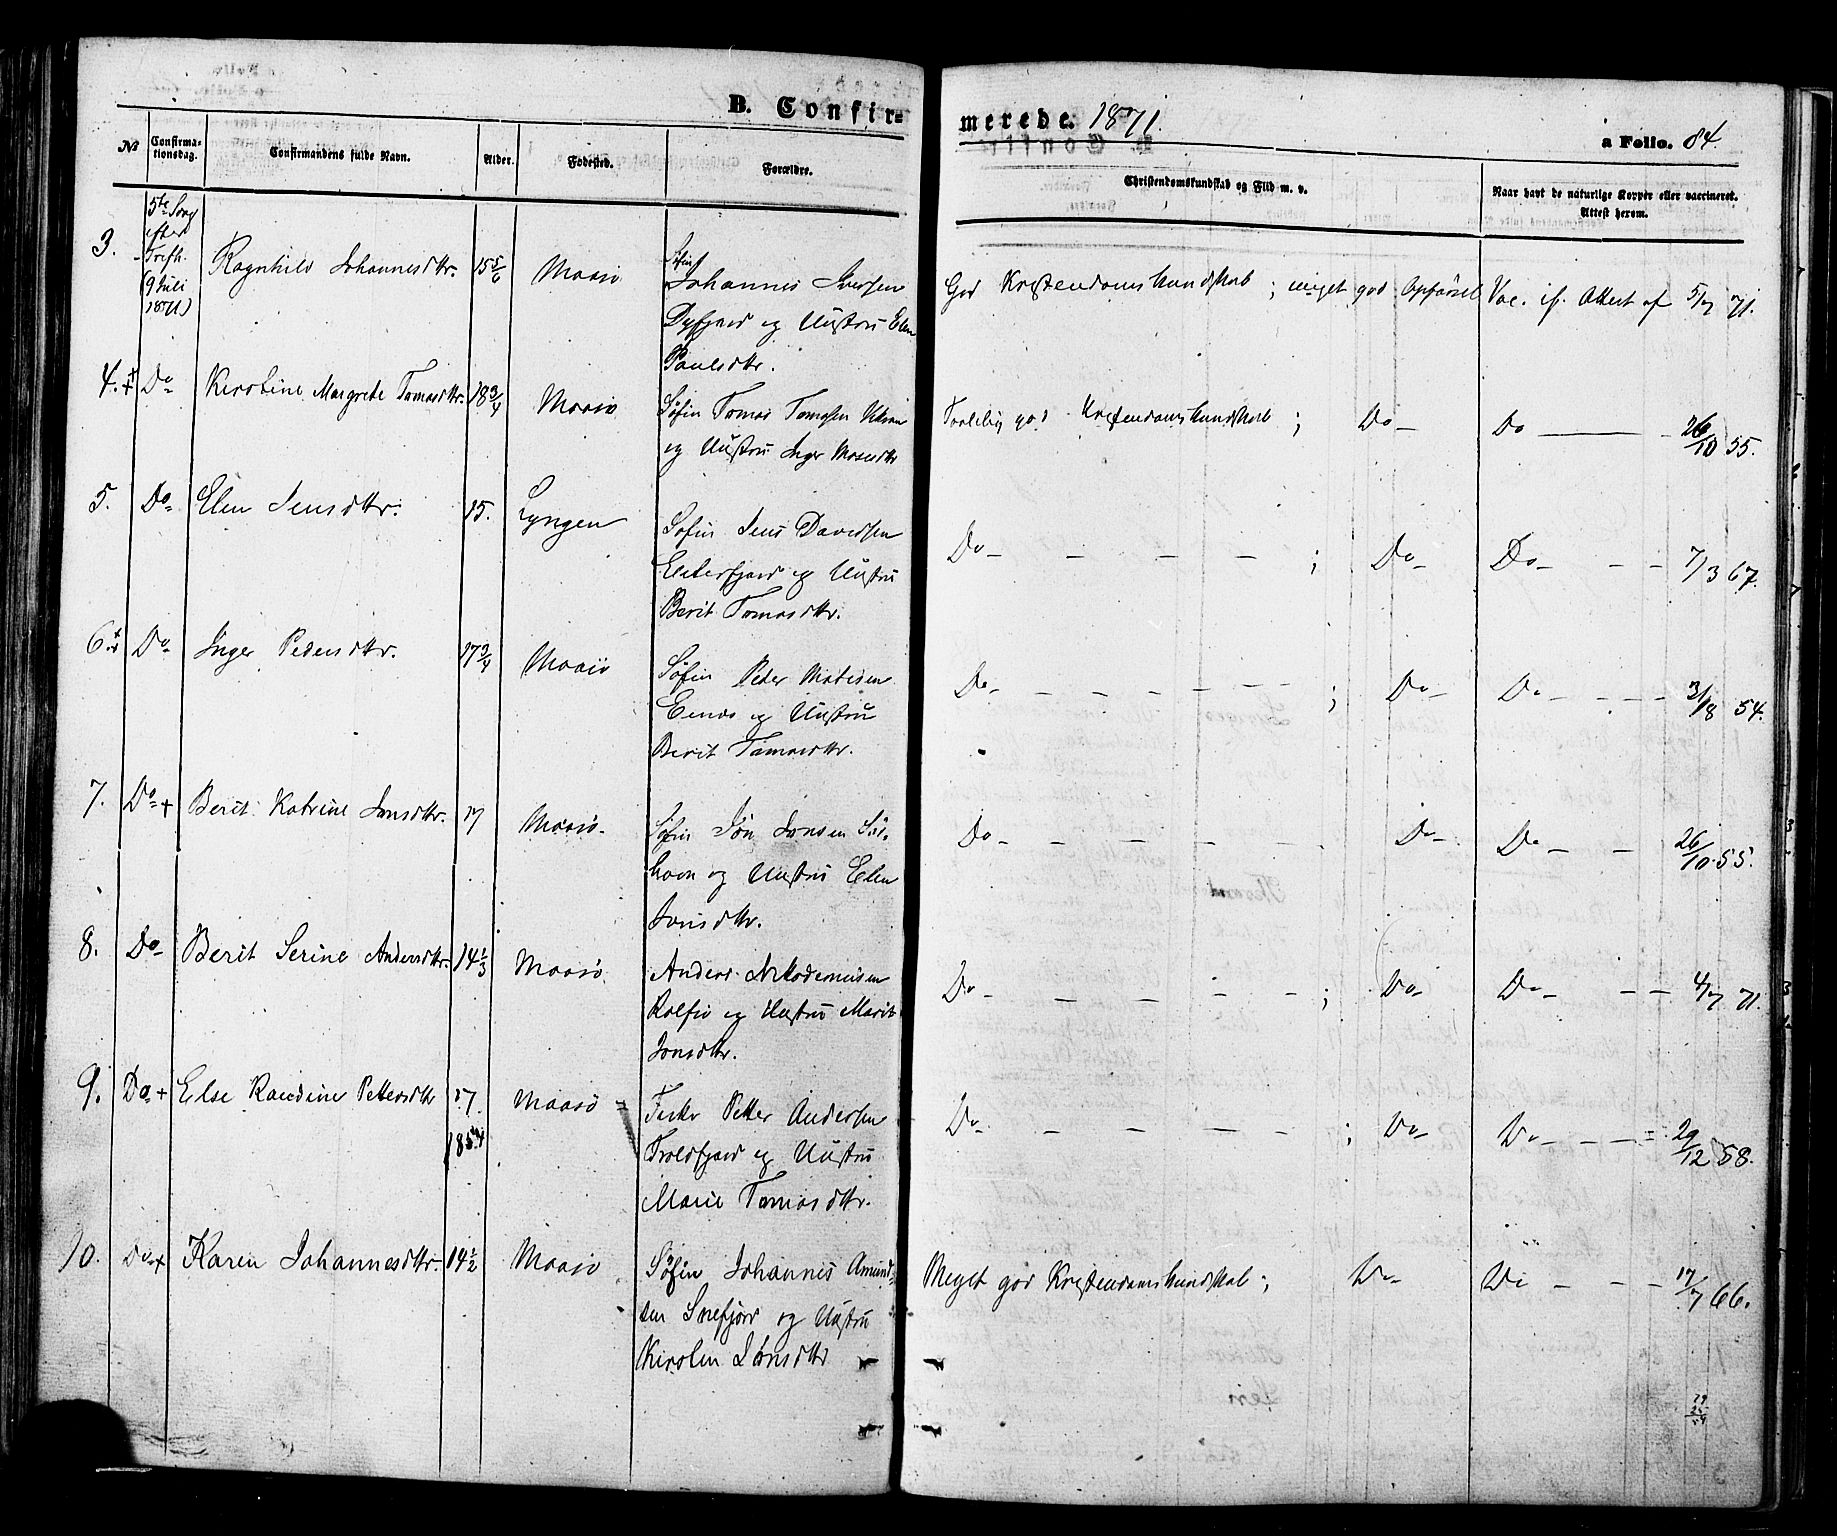 B. Confir=
merede. 1871.
a Folio. 84
№
Confirma-
tionsdag.
Confirmandens fulde Navn.
Alder.
Fødested.
Forældre.
Christendomskundskab og Flid m. v.
Naar havt de naturlige Kopper eller vaccineret.
Attest herom.
3.
5te Søng
efter
Trefh.
(9 Juli
1871)
Ragnhild Johannesdtr.
15 5/6
Maasø
Søfin
Johannes Iversen
Dyfjord og Hustru Elen
Paulsdtr.
God Kristendomskundskab; meget god Opførsel
Vac. if. Attest af 5/7 71.
4. +
Do
Kirstine Margrete Tomasdtr.
18 3/4
Maasø
Søfin Tomas Tomassen
og Hustru Inger Mosesdtr
Taalelig god Kristendomskundskab; Do
Do — 26/10 55.
5.
Do
Elen Jensdtr.
15.
Lyngen
Søfin Jens Davidsen
Eiterfjord og Hustru
Berit Tomasdtr.
Do - - - - ; Do
Do - - - 7/3 67.
6 +
Do
Inger Pedersdtr.
17 3/4
Maasø
Søfin Peder Matisen
og Hustru
Berit Tomasdtr.
Do - - - - - - ; Do
Do - - - 3/8 54.
7.
Do +
Berit Katrine Jonsdtr.
17
Maasø
Søfin Jon Jonsen Sør-
havn og Hustru Elen
Jonsdtr.
Do - - - - - Do
Do - - 26/10 55.
8.
Do
Berit Serine Andersdtr.
14 1/3
Maasø
Anders Nikodemusen
Rolfsø og Hustru Marit
Jonsdtr.
Do - - - - - ; Do
Do - - - 4/7 71.
9.
Do +
Else Randine Pettersdtr
17.
1854
Maasø
Fisker Petter Andersen
Troldfjord og Hustru
Marie Tomasdtr.
Do - - - - - ; Do
Do - - - 29/12 58.
10.
Do +
Karen Johannesdtr.
14 1/2
Maasø
Søfin Johannes Amund-
sen Snefjord og Hustru
Kirsten Jonsdtr
Meget god Kristendomskundskab; Do
Do - - - 17/7 66.